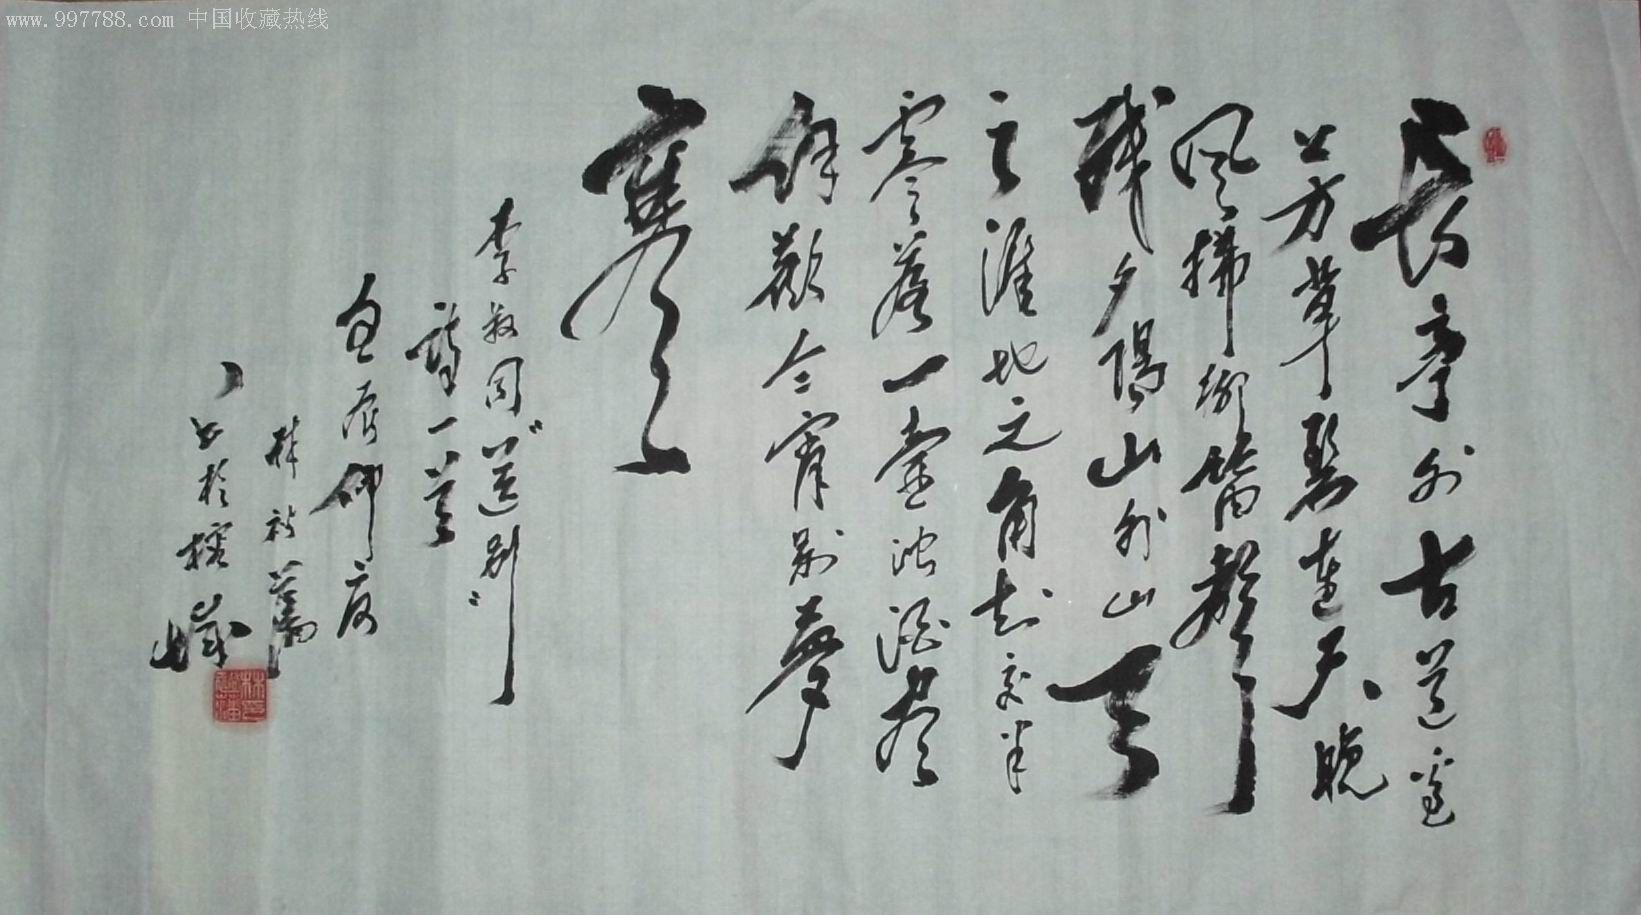 www.997788.com 中国收藏热线
長亭外古道邊
芳草碧連天晚
風拂柳笛聲
残夕陽山外山天
之涯地之角知交半
零落一壶浊酒尽
餘歡今宵别夢
寒
李叔同“送别”
詩一首
林
书於榕城